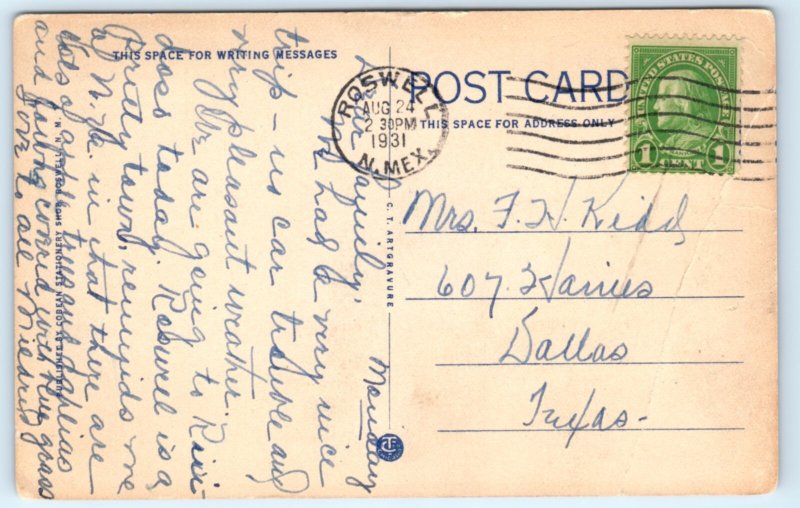 THIS SPACE FOR WRITING MESSAGES
POST CARD
THIS SPACE FOR ADDRESS ONLY
ROSWELL
AUG 24
2 30 PM
1931
N. MEX.
UNITED STATES POSTAGE
1 CENT 1
Monday
Dear Family;
We had a very nice
trip – no car trouble and
very pleasant weather.
We are going to
doso today. Roswell is a
Pretty town, reminds me
of N. H. in that there are
lots of trees and dahlias
and covered with blue grass
Love to all Mildred
PUBLISHED BY COBEAN STATIONERY SHOP, ROSWELL, N. M.
C. T. ARTGRAVURE
Mrs. F. H. Kidd
607 Haines
Dallas
Texas-